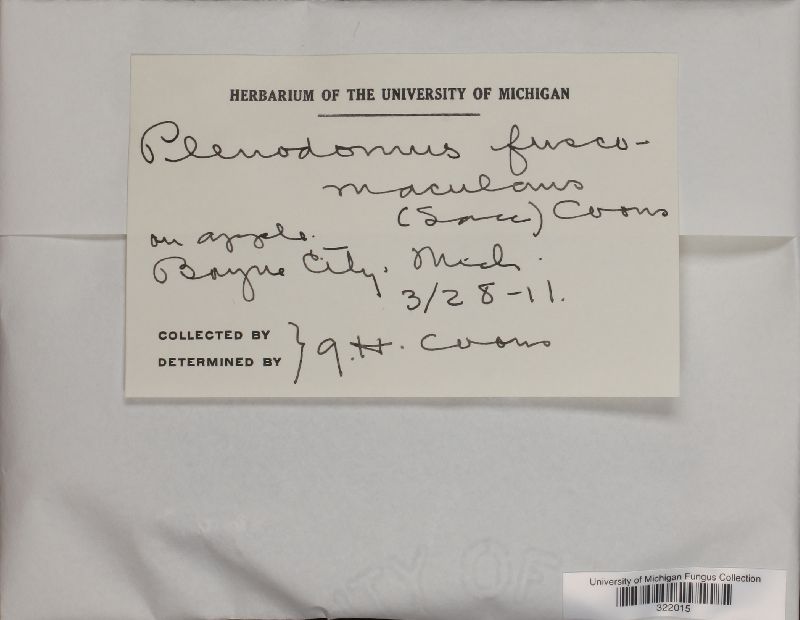 HERBARIUM OF THE UNIVERSITY OF MICHIGAN
Plenodomus fusco-
maculans
(Sacc) Coons
on apple.
Boyne City, Mich.
3/28-11.
COLLECTED BY
DETERMINED BY } G.H. Coons
TY OF
University of Michigan Fungus Collection
322015